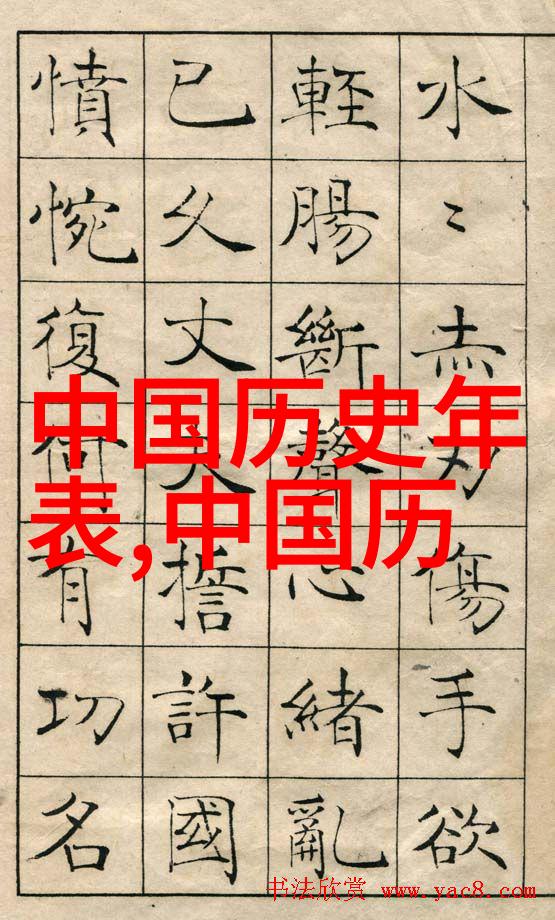 水〻赤刃傷手欲
輕腸斷聲心緒亂
已久丈夫誓許國
憤惋復何有功名
中国历史年
表,中国历
书法欣赏 www.yac8.com